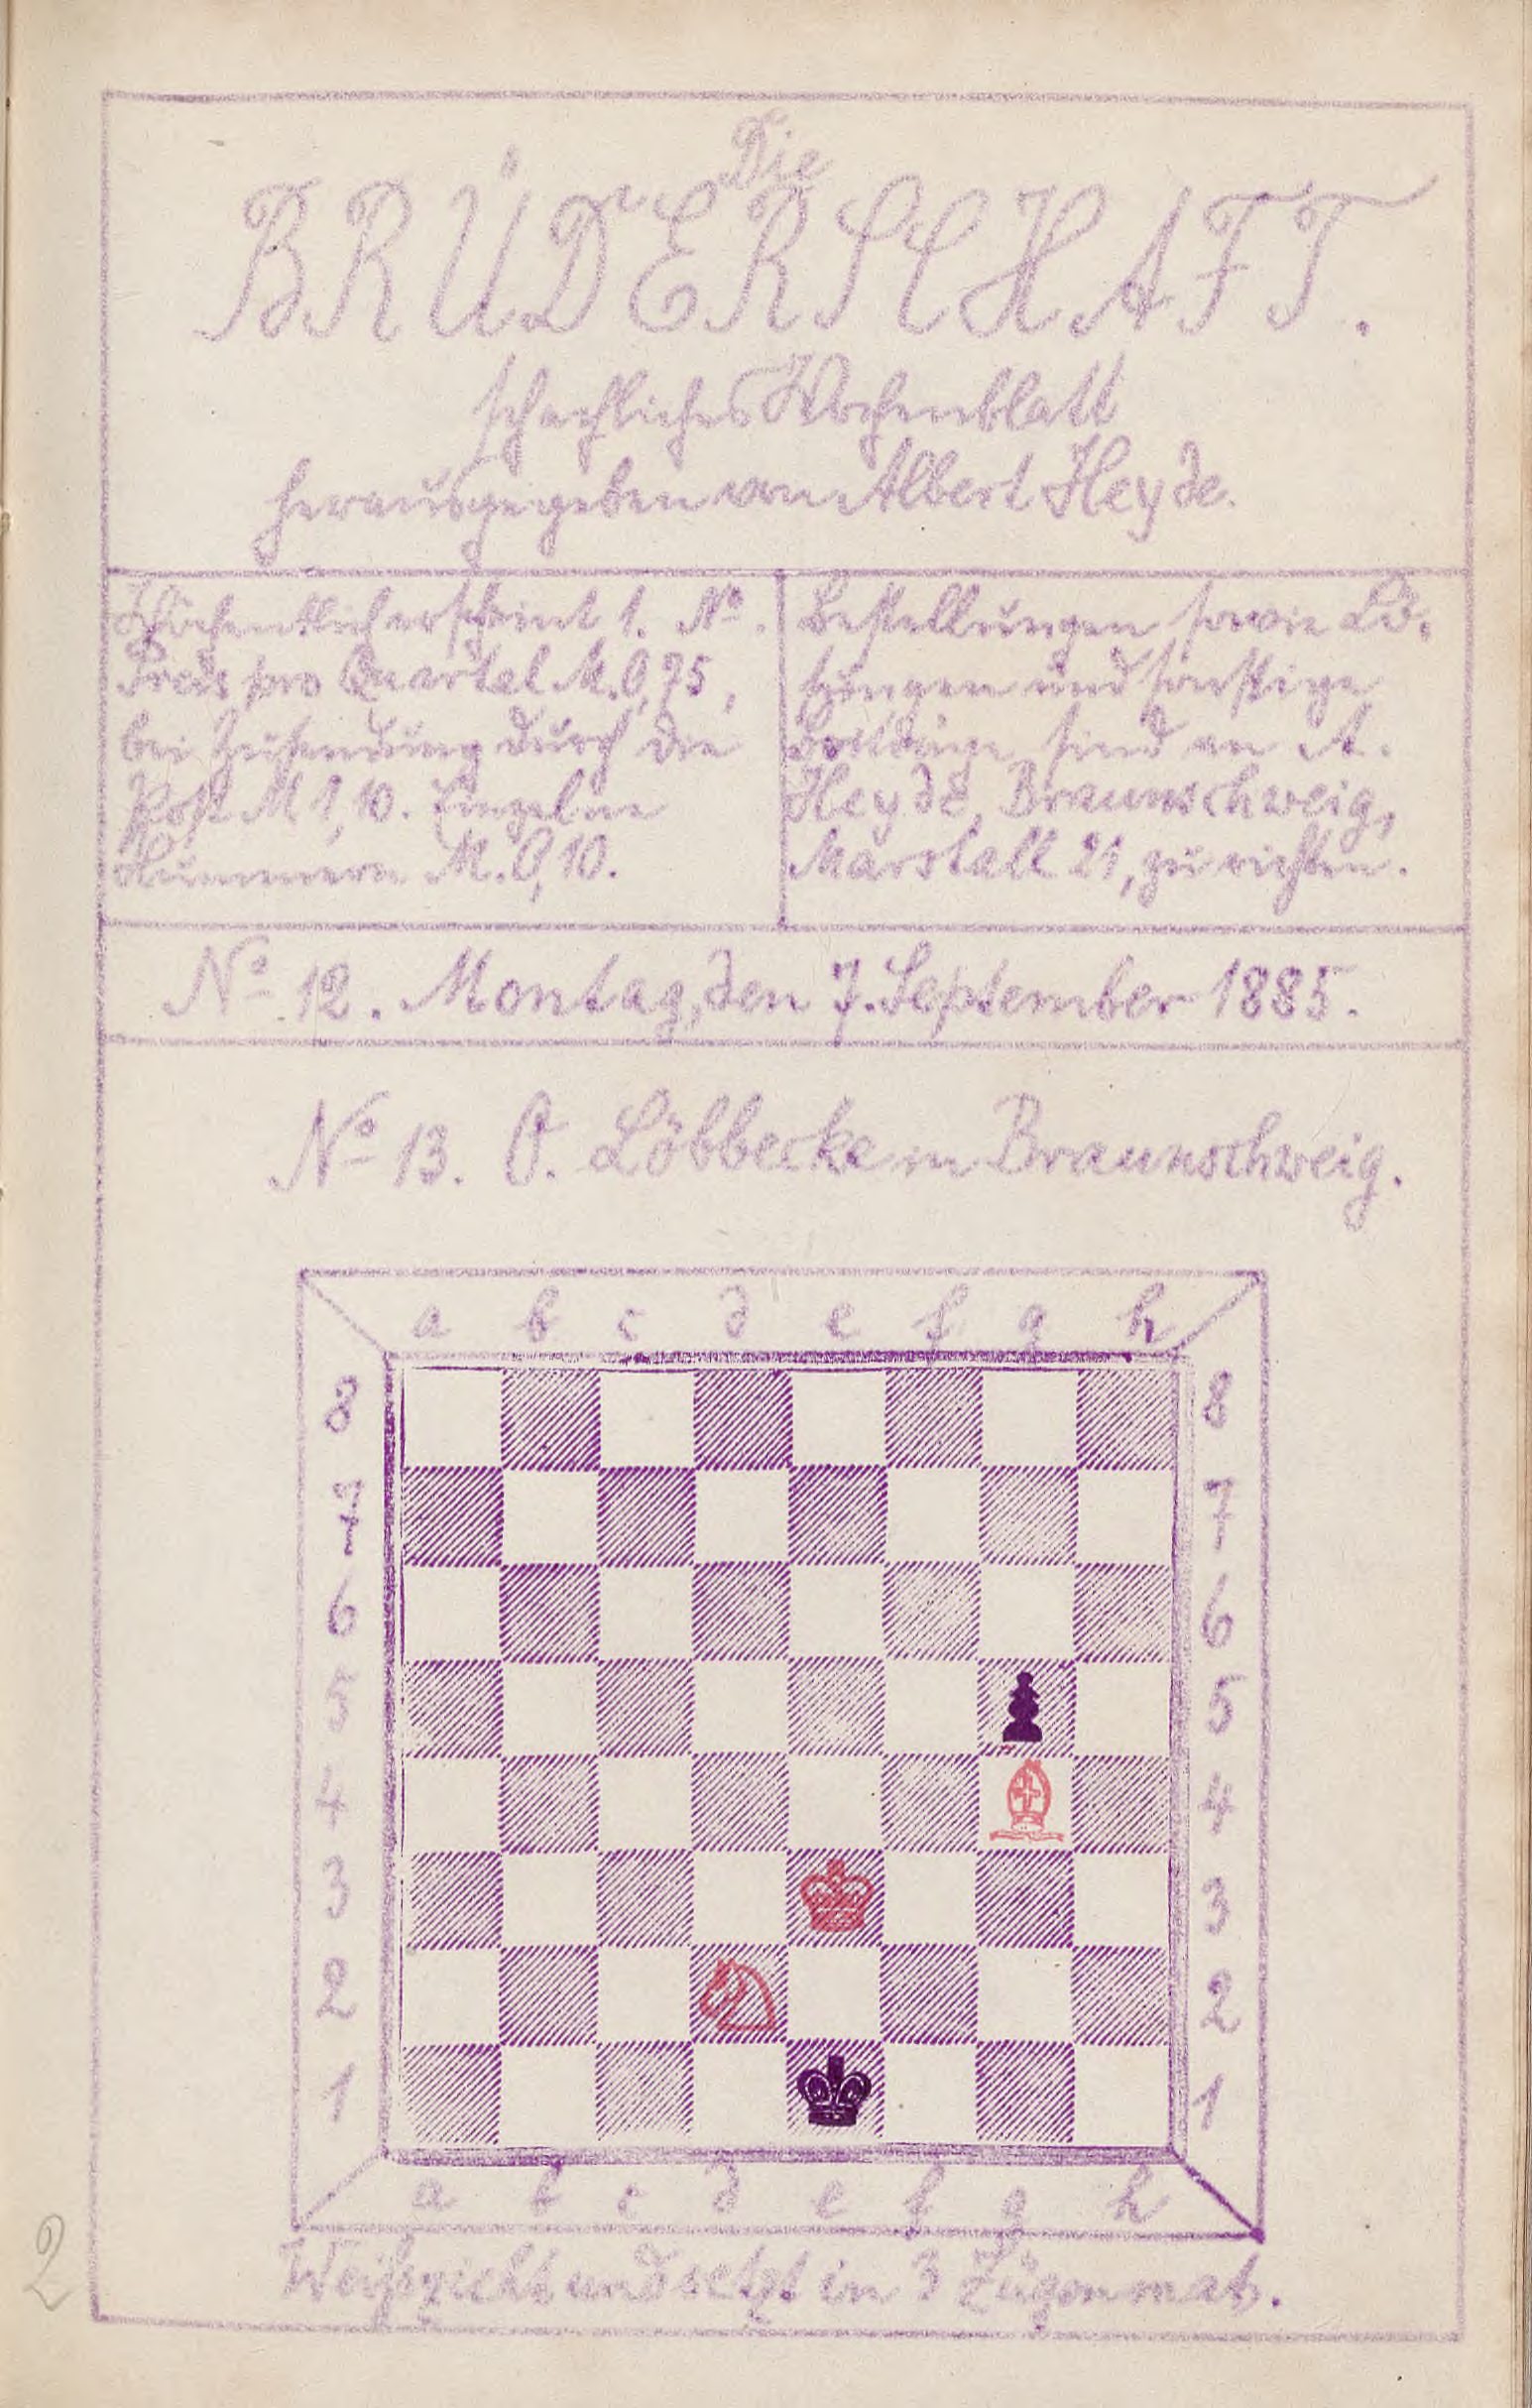 Die
BRÜDERSCHAFT.
schachliches Wochenblatt
herausgegeben von Albert Heyde.
Wöchentlich erscheint 1. No.
Preis pro Quartal M. 0,75,
bei Zusendung durch die
Post M 1,10. Einzelne
Nummern M. 0,10.
Bestellungen sowie Lö-
sungen und sonstige
sind an A.
Heyde, Braunschweig,
Marstall 21, zu richten.
No 12. Montag, den 7. September 1885.
No 13. O. Löbbecke in Braunschweig.
a b c d e f g h
8 8
7 7
6 6
5 5
4 4
3 3
2 2
1 1
a b c d e f g h
Weiß zieht und setzt in 3 Zügen mat.
2